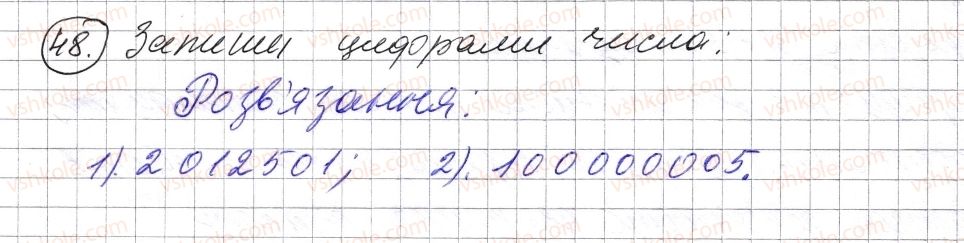 48. Запиши цифрами числа:
Розв'язання:
1). 2 012501; 2). 100000005.